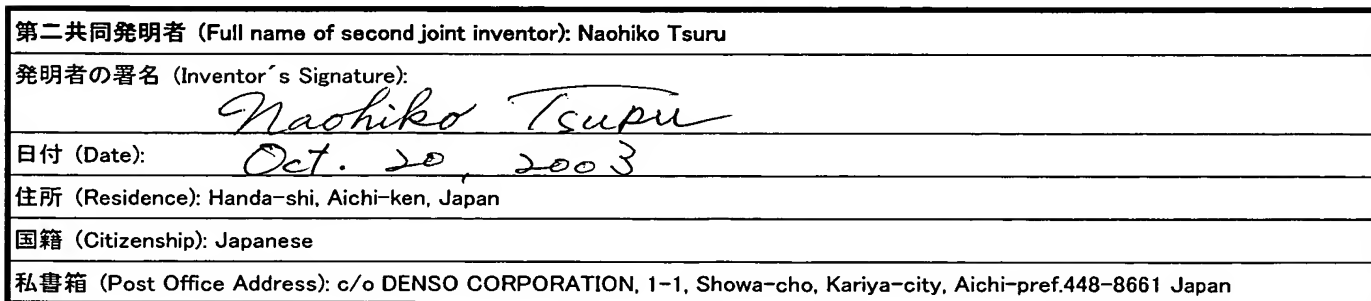 第二共同発明者 (Full name of second joint inventor): Naohiko Tsuru
発明者の署名 (Inventor´s Signature):
Naohiko Tsuru
日付 (Date): Oct. 20, 2003
住所 (Residence): Handa-shi, Aichi-ken, Japan
国籍 (Citizenship): Japanese
私書箱 (Post Office Address): c/o DENSO CORPORATION, 1-1, Showa-cho, Kariya-city, Aichi-pref.448-8661 Japan